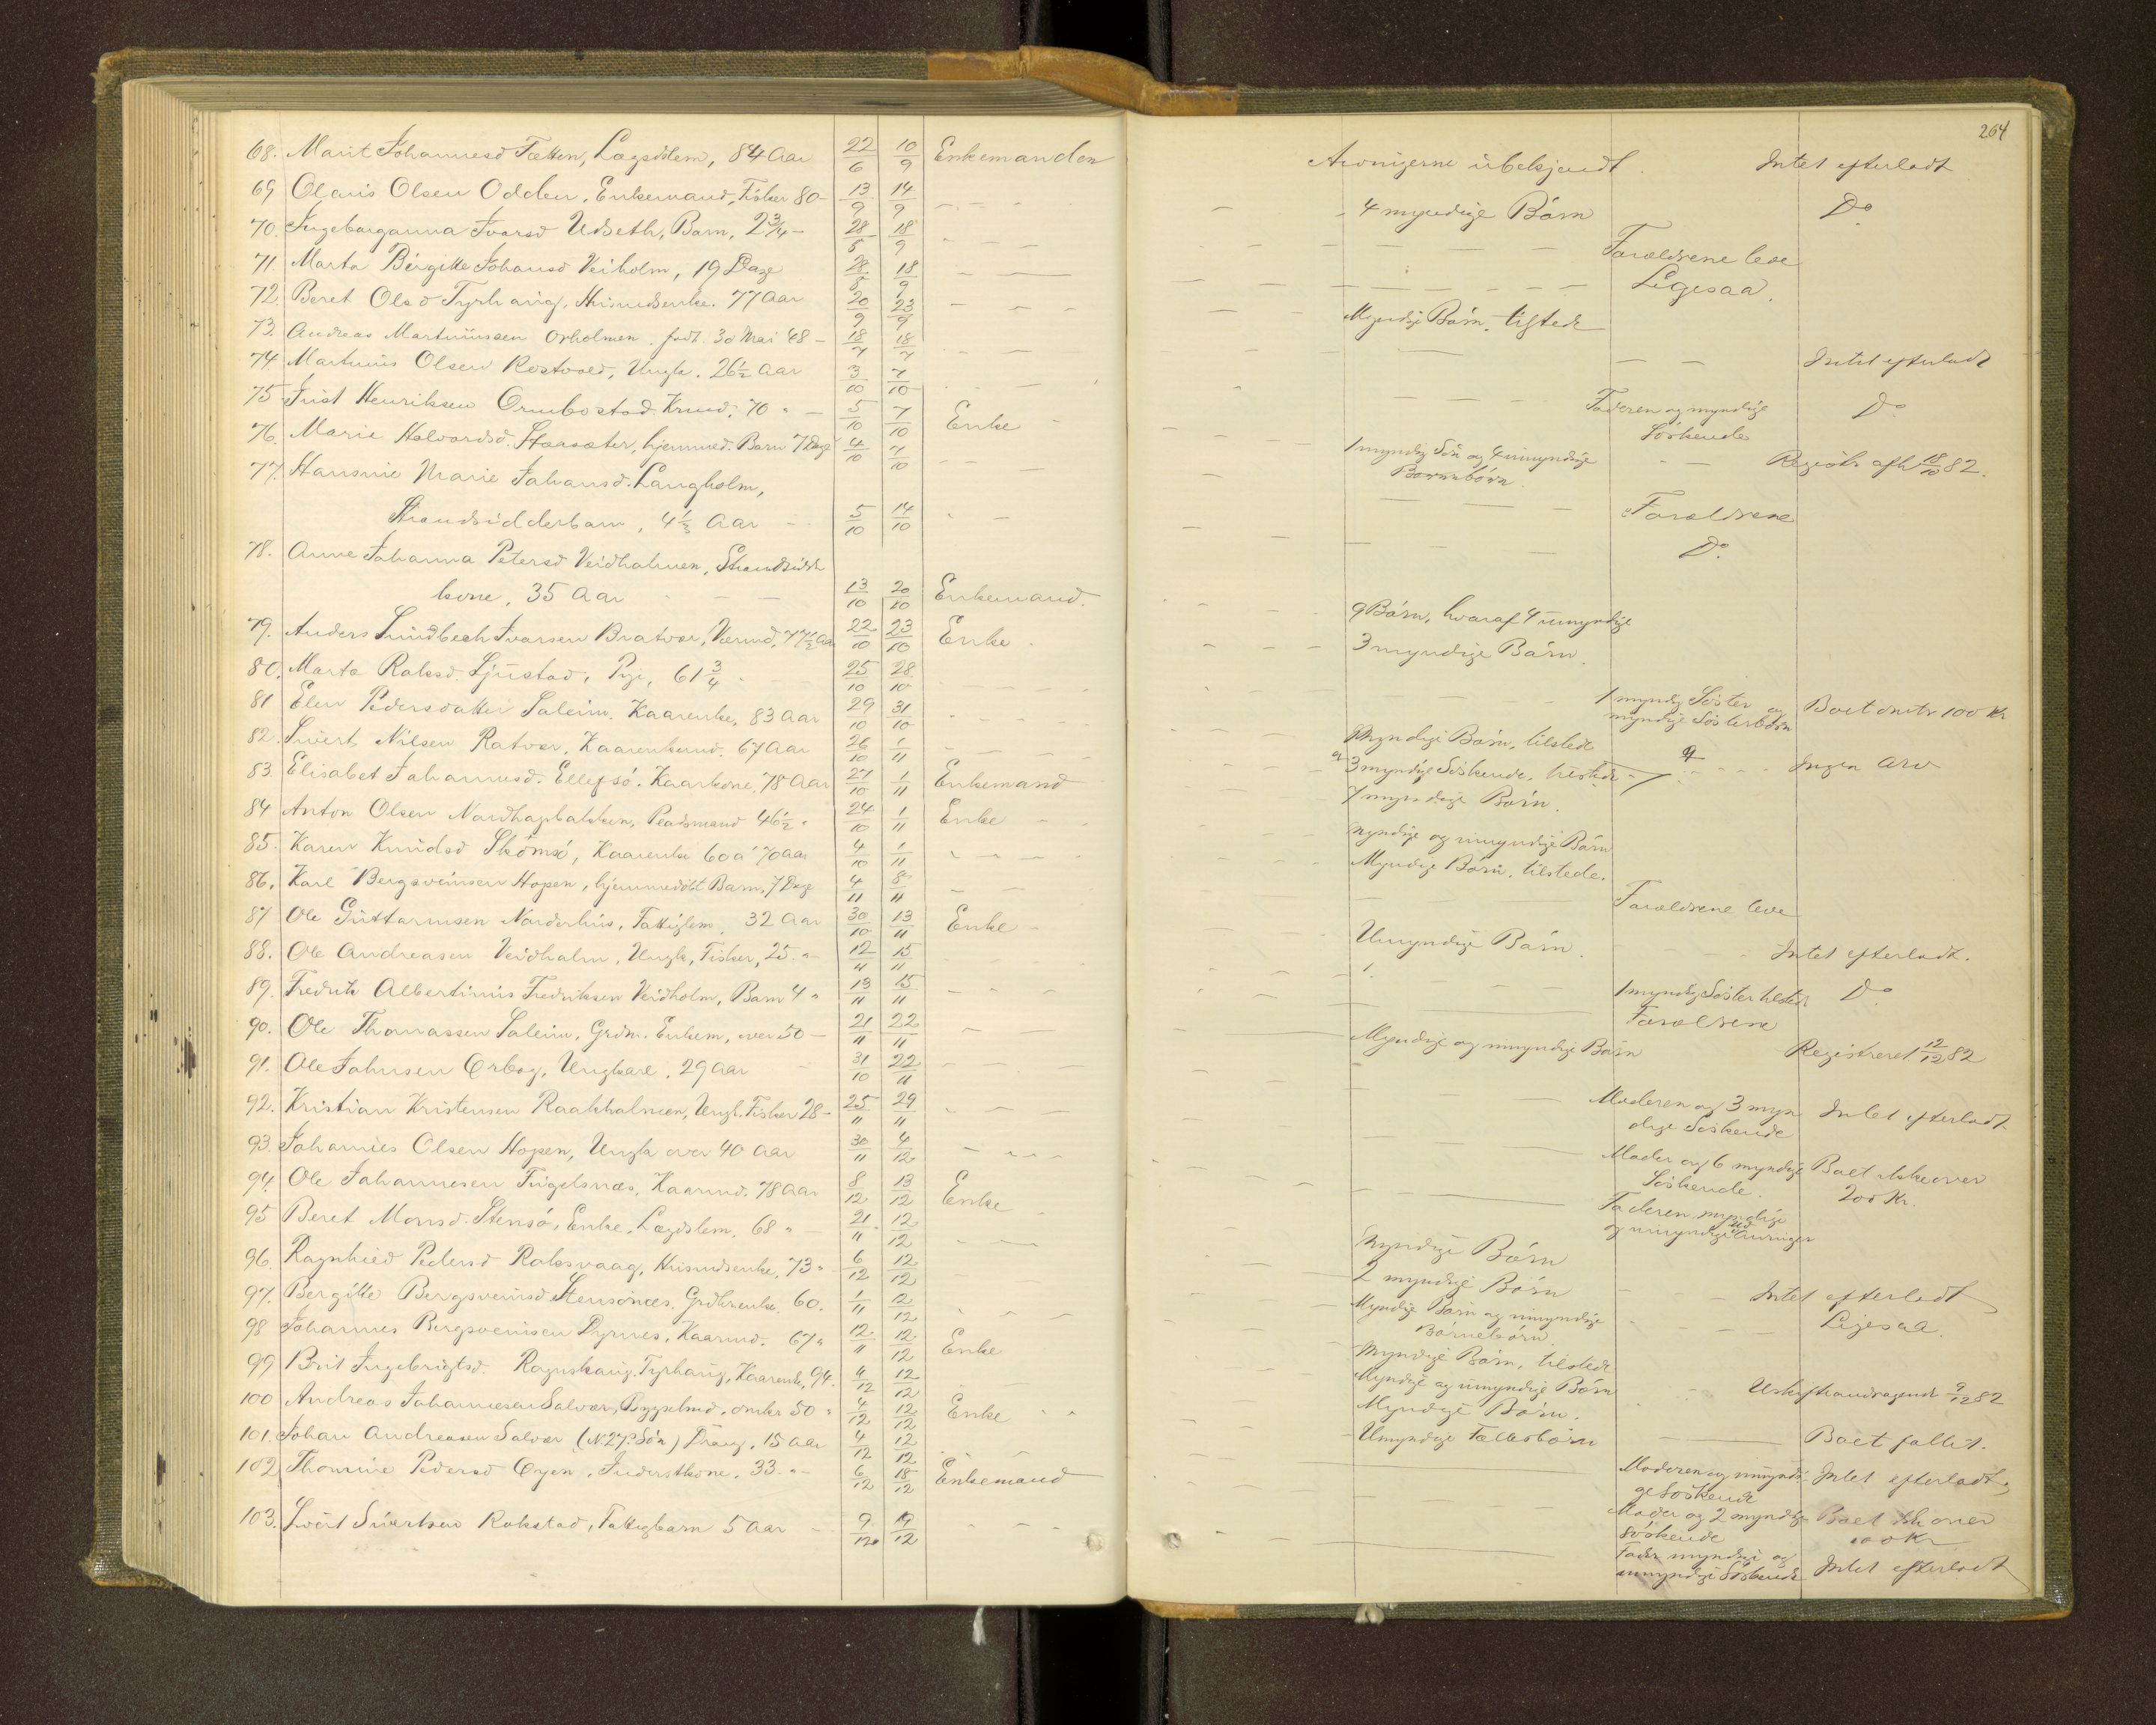 264
68. Marit Johannesd Tætten, Lægdslem, 84 Aar 22/6 10/9 Enkemanden Arvingerne ubekjendt. Intet efterladt
69 Olaus Olsen Odden, Enkemand, Fisker 80 – 13/9 14/9 4 myndige Börn Do
70. Ingeborganna Ivarsd Udseth, Barn, 2 3/4 – 28/5 18/9 Forældrene leve
71. Marta Birgitte Johansd Veiholm, 19 Dage 28/5 18/9 Ligesaa.
72. Beret Olsd Tyrhaug, Husmdsenke. 77 Aar 20/9 23/9 Myndige Börn. tilstede
73. Andreas Martinussen Orholmen. født. 30 Mai 48 – 18/7 18/7 Intet efterladt
74 Martinus Olsen Rostvold, Ungk. 26 1/2 Aar 3/10 7/10 Faderen og myndige Do
Söskende
75 Just Henriksen Ormbostad. Kmd. 70 " – 5/10 7/10 Enke 1 myndig Sön og 4 umyndige Registr. afh 18/10 82.
Børnebörn.
76. Marie Halvorsd. hjemmed. Barn 7 Dage 4/10 7/10 Forældrene
77. Hansine Marie Johansd. Langholm,
Strandsidderbarn, 4 1/3 Aar – 5/10 14/10 Do.
78. Anne Johanna Petersd Veidholmen, Strandsidd
kone, 35 Aar 13/10 20/10 Enkemand. 9 Börn, hvoraf 4 umyndige
79. Anders Lundbech Ivarsen Bratvær, 77 1/2 Aar 22/10 23/10 Enke 3 myndige Börn.
80. Marta Roksd. Ljustad, Pige, 61 3/4 " 25/10 28/10 1 myndig Söster og Boet omtr 100 Kr
myndige Sösterbörn
81 Elen Pedersdatter Saleim. Kaarenke, 83 Aar 29/10 31/10 Myndige Börn, tilstede
82. Sivert Nilsen Ratvær, Kaarenkemd. 67 Aar 26/10 1/11 3 myndige Söskende. tilstede Ingen Arv
83. Elisabet Johannesd. Ellefsö. Kaarkone, 78 Aar 27/10 1/11 Enkemand 7 myndige Börn.
84 Anton Olsen Nordhapbakken, Pladsmand 46 1/2 " 24/10 1/11 Enke Myndige og umyndige Börn
85. Karen Knudsd Skömsö, Kaarenke 60 à 70 Aar 4/10 1/11 Myndige Börn. tilstede.
86. Karl Bergsveinsen Hopen, hjemmedöbt Barn, 7 Dage 4/11 8/11 Forældrene leve
87 Ole Guttormsen Norderhus, Fattiglem, 32 Aar 30/10 13/11 Enke Umyndige Börn. Intet efterladt.
88. Ole Andreasen Veidholm, Ungk, Fisker, 25 " 12/11 15/11 1 myndig Söster tilstede Do
89. Fredrik Albertinus Fredriksen Veidholm, Barn 4 " 13/11 15/11 Forældrene
90. Ole Thomassen Saleim, Grdm. Enkem, over 50 – 21/11 22/11 Myndige og umyndige Börn Registreret 12/12 82
91. Ole Johnsen Orbog, Ungkarl. 29 Aar 31/10 22/11 Moderen og 3 myn Intet efterladt
dige Söskende
92. Kristian Kristensen Raakholmen, Ungk. Fisker 28 – 25/11 29/11 Moder og 6 myndige Boet ikke over
Söskende. 200 Kr.
93 Johannes Olsen Hopen, Ungk over 40 Aar 30/11 4/12 Faderen. myndige
og umyndige Arvinger
94. Ole Johannesen Fugelsnæs, Kaarmd. 78 Aar 8/12 13/12 Enke Myndige Börn
95 Beret Monsd. Stensö, Enke, Lægdslem, 68 " 21/11 12/12 2 myndige Börn Intet efterladt
96. Ragnhild Pedersd Roksvaag, Husmdsenke, 73 " 6/12 12/12 Myndige Börn og umyndige Ligesaa.
Börnebörn
97. Bergitte Bergsveinsd Stensönæs, 60. 1/11 12/12 Myndige Börn, tilstede
98 Johannes Bergsveinsen Dyrnes, Kaarmd. 67 " 12/11 12/12 Enke Myndige og umyndige Börn 9/12 82
99 Brit Ingebrigtsd. Tyrhaug, Kaarenk, 94. 4/12 12/12 Myndige Börn.
100 Andreas Johannesen Salvær, omkr 50 " 4/12 12/12 Enke Umyndige Fællesbörn Boet fallit.
101. Johan Andreasen Salvær (No 27. Sön) Dreng. 15 Aar 4/12 12/12 Moderen og umyndi Intet efterladt
ge Söskende
102 Thomine Pedersd Oyen. Inderstkone. 33. " 6/12 18/12 Enkemand Moder og 2 myndige Boet ikke over
Söskende Kr
103. Sivert Sivertsen Rokstad, Fattigbarn 5 Aar 9/12 19/12 Fader myndige og Intet efterladt
umyndige Söskende